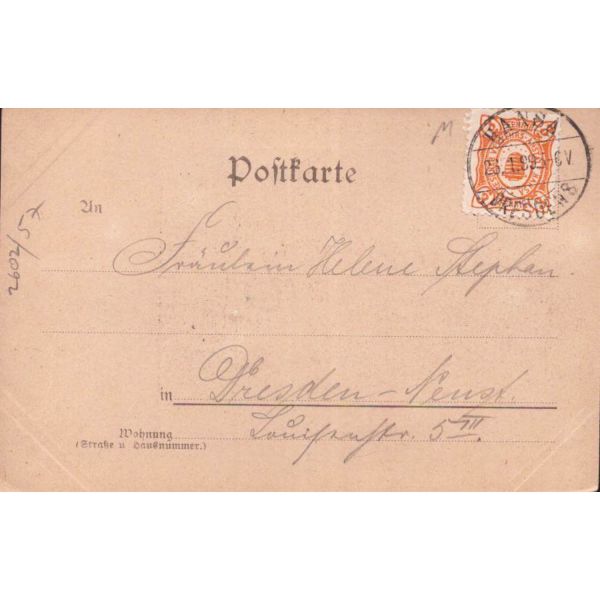 M
HANSA
23.1.99. 6V
DRESDEN 8
Postkarte
An
Fräulein Helene Stephan.
in Dresden-Neust.
Wohnung
(Straße u. Hausnummer.)
Louisenstr. 5 III
2602/5x